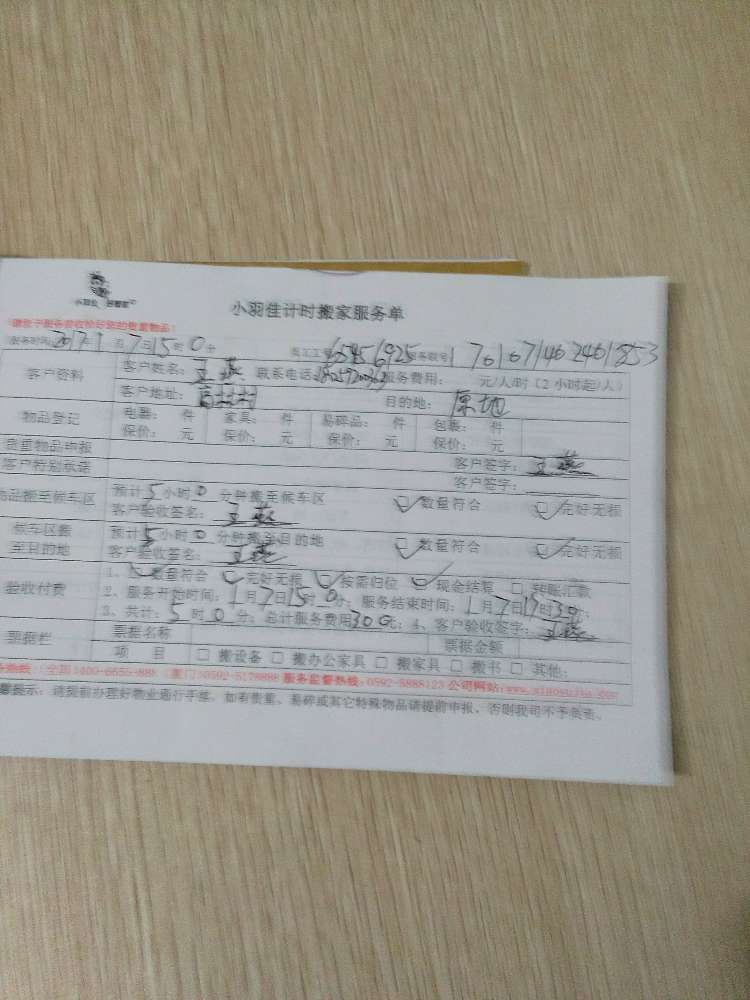 小羽佳计时搬家服务单
服务时间:2017年1月7日15时0分 员工工号65456925服务联号1 76167146 2461853
客户资料 客户姓名:王燕 联系电话 服务费用: 元/人/时(2小时起/人)
客户地址: 目的地:原地
物品登记 电器: 件 家具: 件 易碎品: 件 包裹: 件
保价: 元 保价: 元 保价: 元 保价: 元
贵重物品申报 客户签字:王燕
客户特别承诺 客户签字:
物品搬至候车区 预计5小时0分钟搬至候车区 数量符合 完好无损
客户验收签名:王燕
候车区搬至目的地 预计5小时0分钟搬至目的地 数量符合 完好无损
客户验收签名:王燕
验收付费 1、数量符合 完好无损 按需归位 现金结算 转账汇款
2、服务开始时间:1月7日15时0分;服务结束时间:1月7日17时30分;
3、共计:5时0分;总计服务费用300元;4、客户验收签字:王燕
票据栏 票据名称 票据金额
项 目 搬设备 搬办公家具 搬家具 搬书 其他:
服务监督热线:0592-5888123 公司网站:www.xiaoyujia.com
温馨提示:请提前办理好物业通行手续,如有贵重、易碎或其它特殊物品请提前申报,否则我司不予负责。